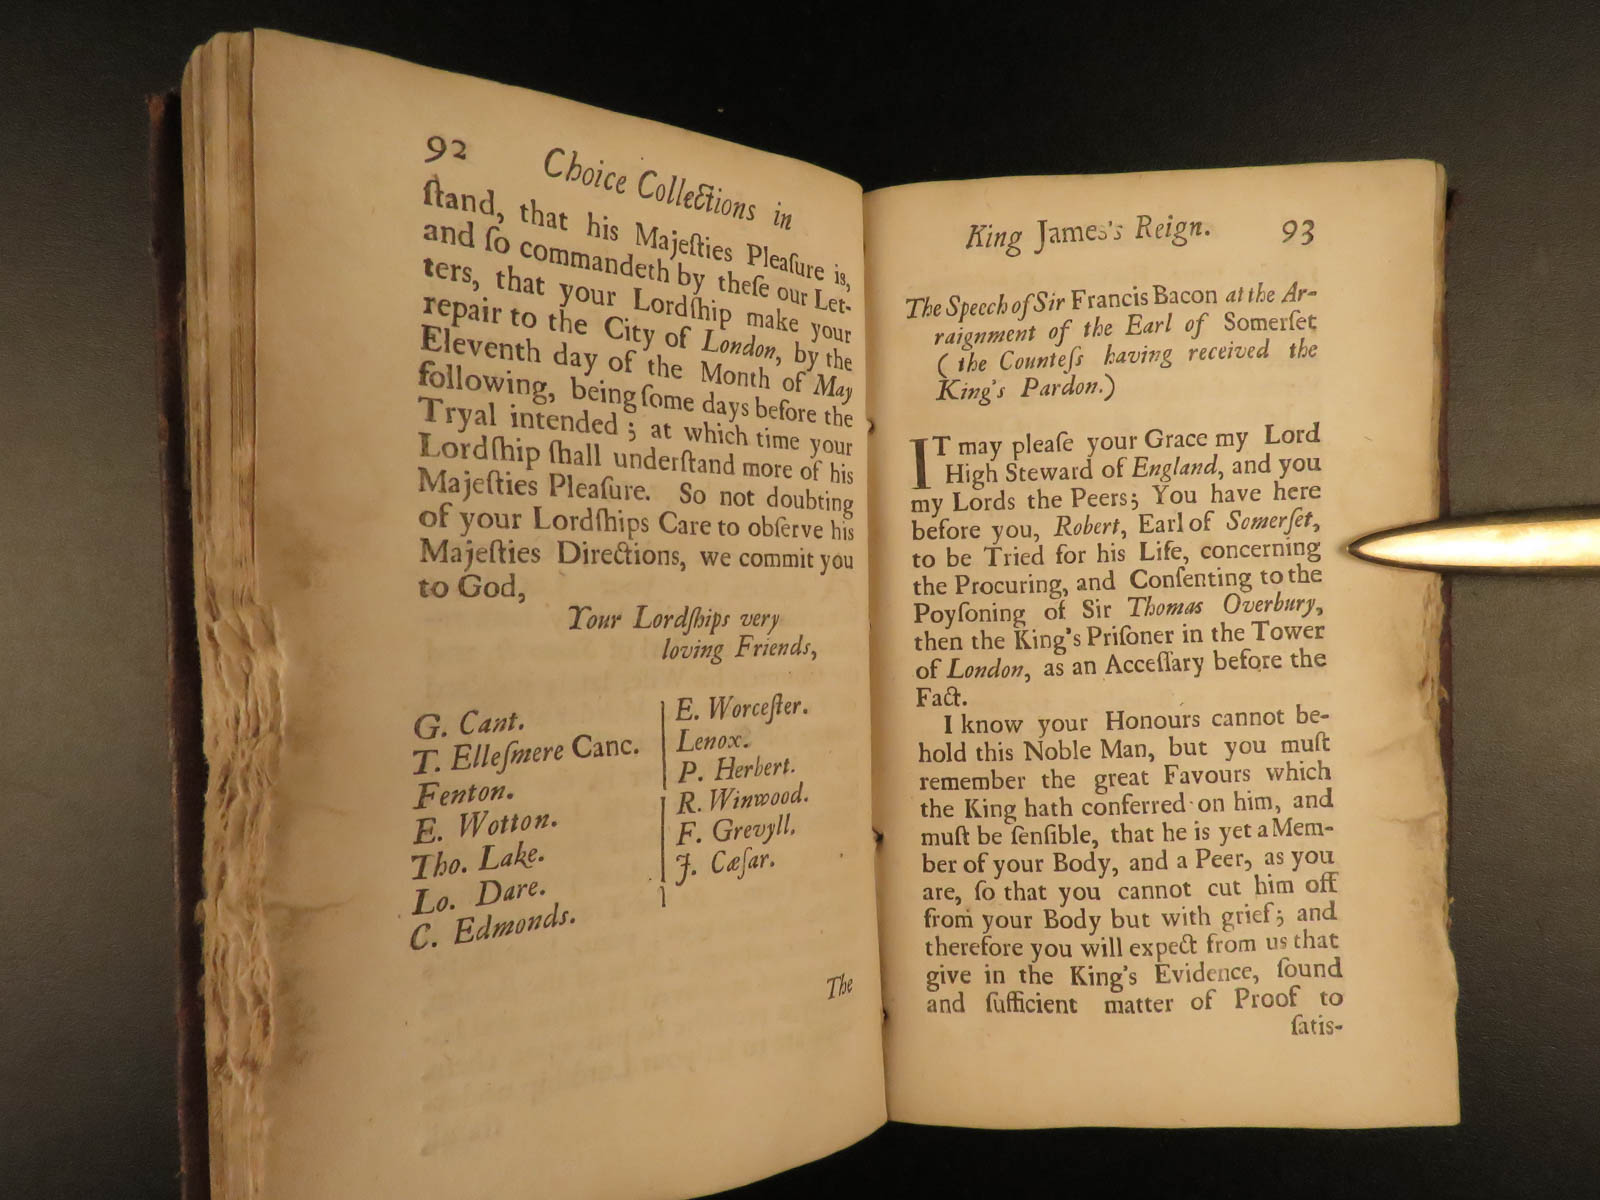 92
Choice Collections in
ſtand, that his Majeſties Pleaſure is,
and ſo commandeth by theſe our Let-
ters, that your Lordſhip make your
repair to the City of London, by the
Eleventh day of the Month of May
following, being ſome days before the
Tryal intended; at which time your
Lordſhip ſhall underſtand more of his
Majeſties Pleaſure. So not doubting
of your Lordſhips Care to obſerve his
Majeſties Directions, we commit you
to God,
Your Lordſhips very
loving Friends,
G. Cant.
T. Elleſmere Canc.
Fenton.
E. Wotton.
Tho. Lake.
Lo. Dare.
C. Edmonds.
E. Worceſter.
Lenox.
P. Herbert.
R. Winwood.
F. Grevyll.
J. Cæſar.
The
King James's Reign. 93
The Speech of Sir Francis Bacon at the Ar-
raignment of the Earl of Somerſet
(the Counteſs having received the
King's Pardon.)
IT may pleaſe your Grace my Lord
High Steward of England, and you
my Lords the Peers; You have here
before you, Robert, Earl of Somerſet,
to be Tried for his Life, concerning
the Procuring, and Conſenting to the
Poyſoning of Sir Thomas Overbury,
then the King's Priſoner in the Tower
of London, as an Acceſſary before the
Fact.
I know your Honours cannot be-
hold this Noble Man, but you muſt
remember the great Favours which
the King hath conferred on him, and
muſt be ſenſible, that he is yet a Mem-
ber of your Body, and a Peer, as you
are, ſo that you cannot cut him off
from your Body but with grief; and
therefore you will expect from us that
give in the King's Evidence, ſound
and ſufficient matter of Proof to
ſatis-